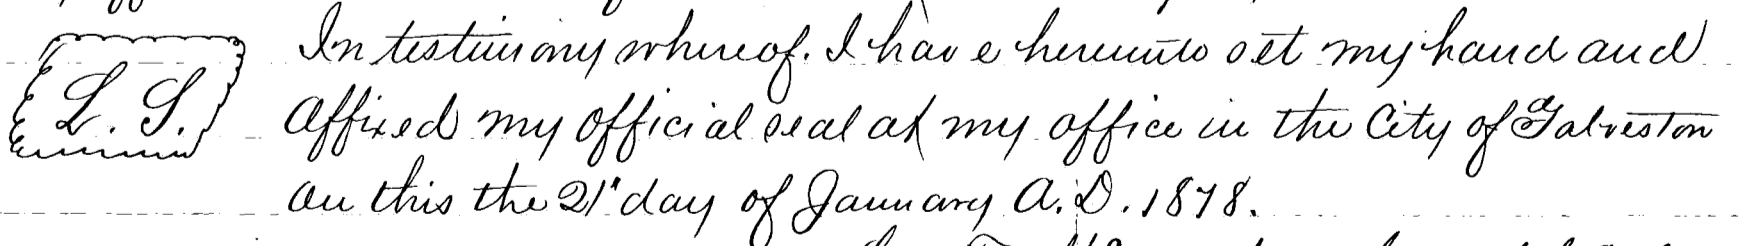 In testimony whereof. I have hereunto set my hand and
L. S. affixed my official seal at my office in the City of Galveston
on this the 21" day of January A.D. 1878.